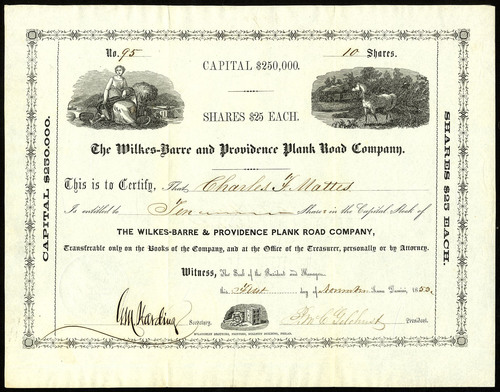 No. 95
10 Shares.
CAPITAL $250,000.
SHARES $25 EACH.
CAPITAL $250.000.
SHARES $25 EACH.
The Wilkes-Barre and Providence Plank Road Company.
This is to Certify, That Charles F. Mattes
Is entitled to Ten Shares in the Capital Stock of
THE WILKES-BARRE & PROVIDENCE PLANK ROAD COMPANY,
Transferable only on the Books of the Company, and at the Office of the Treasurer, personally or by Attorney.
Witness, The Seal of the President and Managers
this First day of November Anno Domini, 185
Harding Secretary.
Gilchrist President.